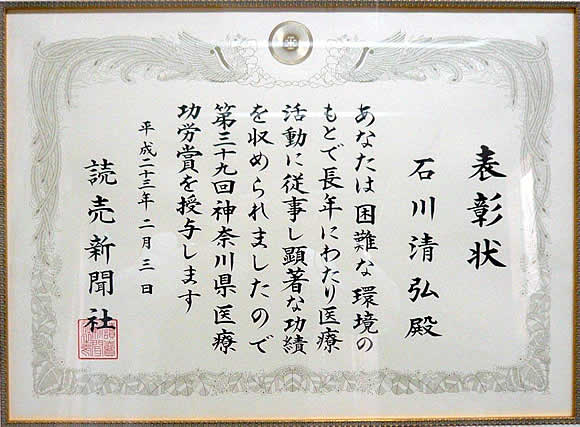 表彰状
石川清弘殿
あなたは困難な環境の
もとで長年にわたり医療
活動に従事し顕著な功績
を収められましたので
第三十九回神奈川県医療
功労賞を授与します
平成二十三年二月三日
読売新聞社